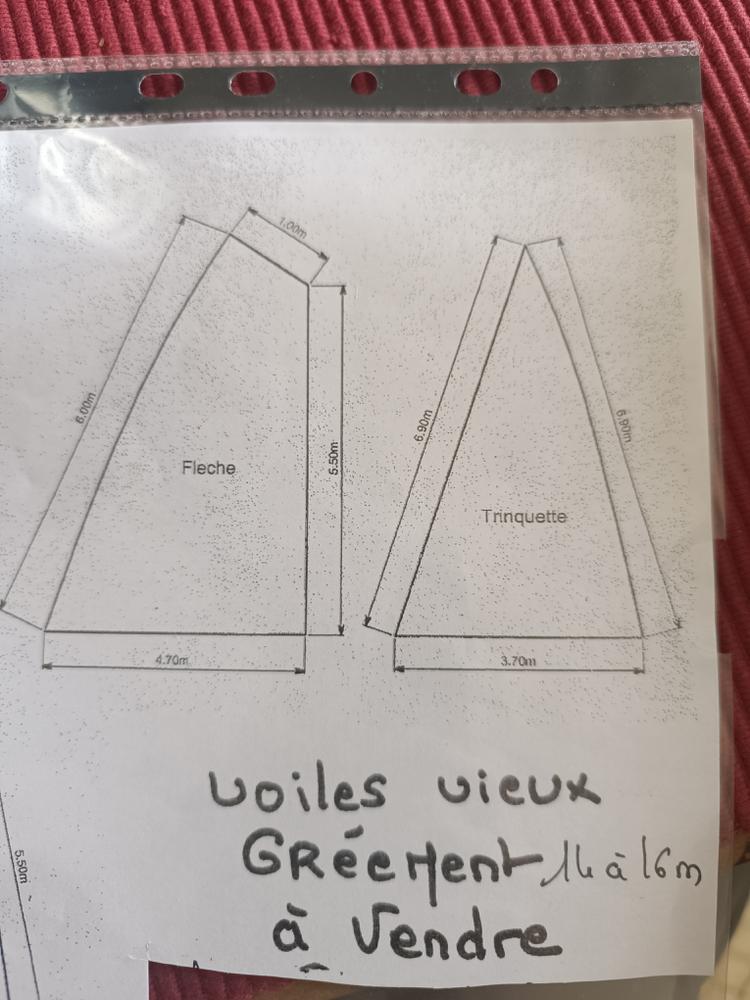 1.00m
6.00m
5.50m
Fleche
4.70m
6.90m
6.90m
Trinquette
3.70m
5.50m
voiles vieux
GRéement 14 à 16m
à Vendre